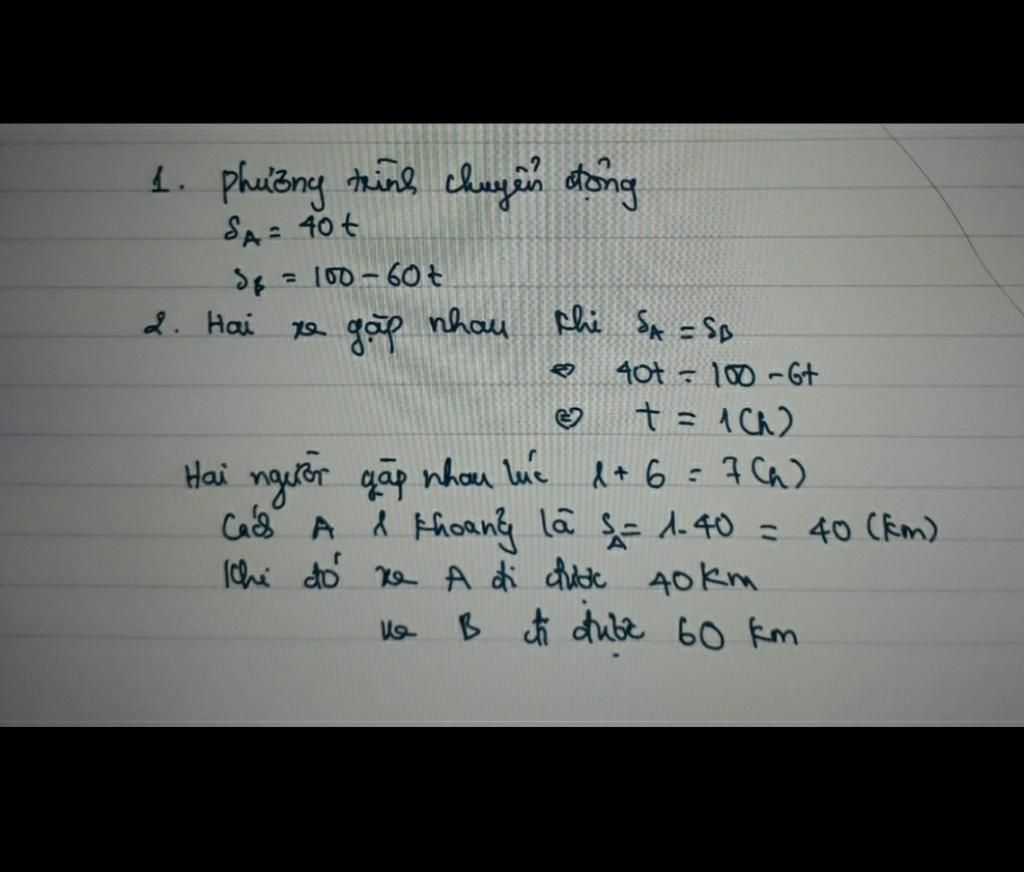 1. Phương trình chuyển động
S_A = 40t
S_B = 100 - 60t
2. Hai xe gặp nhau khi S_A = S_B
⇔ 40t = 100 - 6t
⇔ t = 1(h)
Hai người gặp nhau lúc 1 + 6 = 7(h)
Cách A 1 khoảng là S_A = 1.40 = 40 (km)
Khi đó xe A đi được 40 km
xe B đi được 60 km